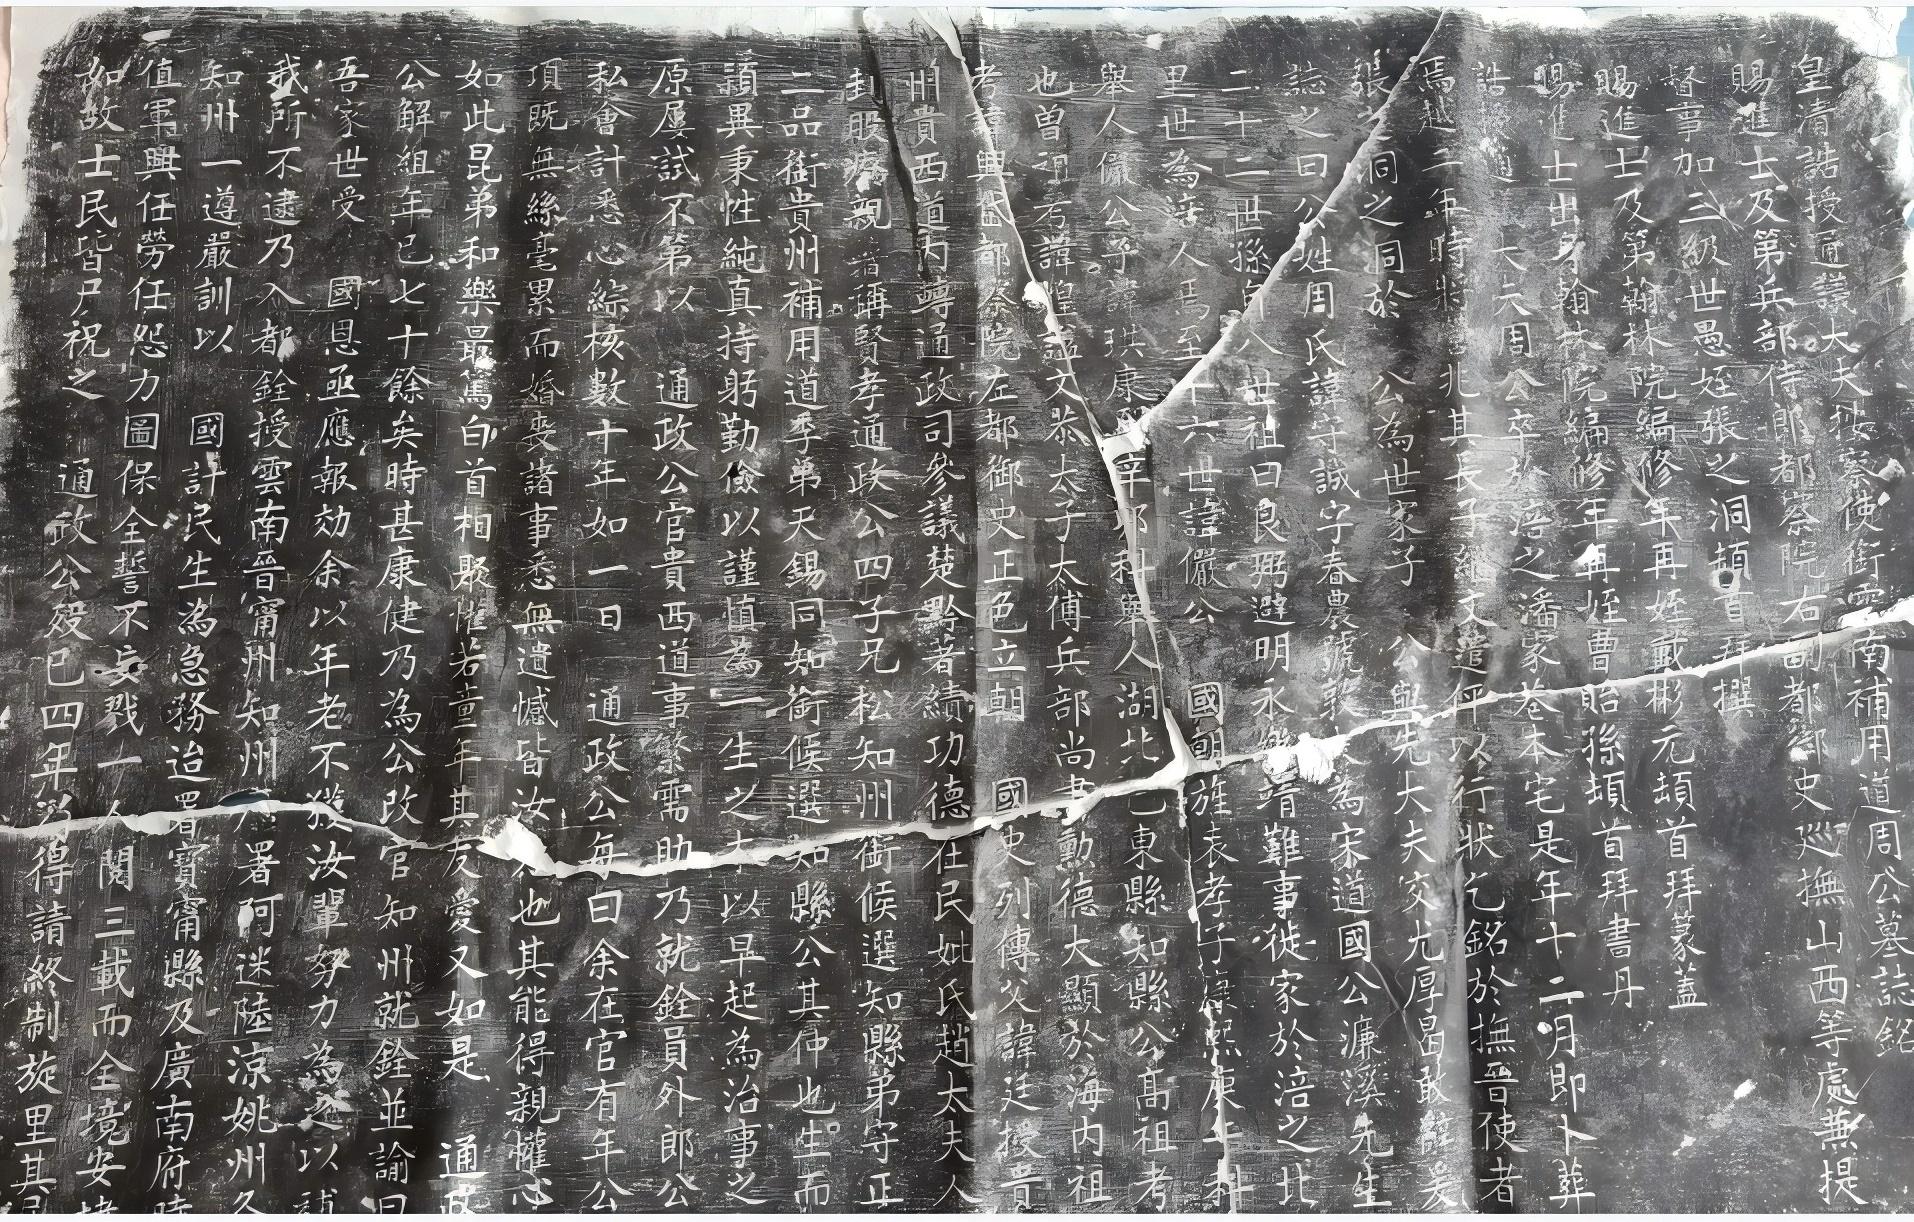 皇清誥授通議大夫按察使銜雲南補用道周公墓誌銘
賜進士及第兵部侍郎都察院右副都御史巡撫山西等處兼提
督事加三級世愚姪張之洞頓首拜撰
賜進士及第翰林院編修年再姪戴彬元頓首拜篆蓋
賜進士出身翰林院編修年再姪曹貽孫頓首拜書丹
誥 大夫周公卒於涪之潘家巷本宅是年十二月即卜葬
焉越二年時將兆其長子繼文遣伻以行狀乞銘於撫晉使者
張之洞之洞於 公為世家子 公與先大夫交尤厚曷敢辭爰
誌之曰公姓周氏諱守誠字春農號敦 為宋道國公濂溪先生
二十二世孫 八世祖曰良弼避明永樂靖難事徙家於涪之北
里世為涪人焉至十六世諱儼公 國朝旌表孝子康熙庚 科
舉人儼公子諱珙康熙辛卯科舉人湖北巴東縣知縣公高祖考
也曾祖考諱煌諡文恭太子太傅兵部尚書勳德大顯於海內祖
考諱興岱都察院左都御史正色立朝 國史列傳父諱廷授貴
州貴西道內 通政司參議楚黔著績功德在民妣氏趙太夫人
封股療親 稱賢孝通政公四子兄松知州銜候選知縣弟守正
二品銜貴州補用道季弟天錫同知銜候選知縣公其仲也生而
穎異秉性純真持躬勤儉以謹慎為一生之本以早起為治事之
原屢試不第以 通政公官貴西道事繁需助乃就銓員外郎公
私會計悉心綜核數十年如一日 通政公每曰余在官有年公
項既無絲毫累而婚喪諸事悉無遺憾皆汝 也其能得親懽心
如此昆弟和樂最篤白首相聚懽若童年其友愛又如是 通政
公解組年已七十餘矣時甚康健乃為公改官知州就銓並諭曰
吾家世受 國恩亟應報効余以年老不獲汝輩努力為之以補
我所不逮乃入都銓授雲南晉甯州知州 署阿迷陸涼姚州各
知州一遵嚴訓以 國計民生為急務迨署寶甯縣及廣南府時
值軍興任勞任怨力圖保全誓不妄戮一人閱三載而全境安堵
如故士民皆尸祝之 通政公歿已四年乃得請終制旋里其居